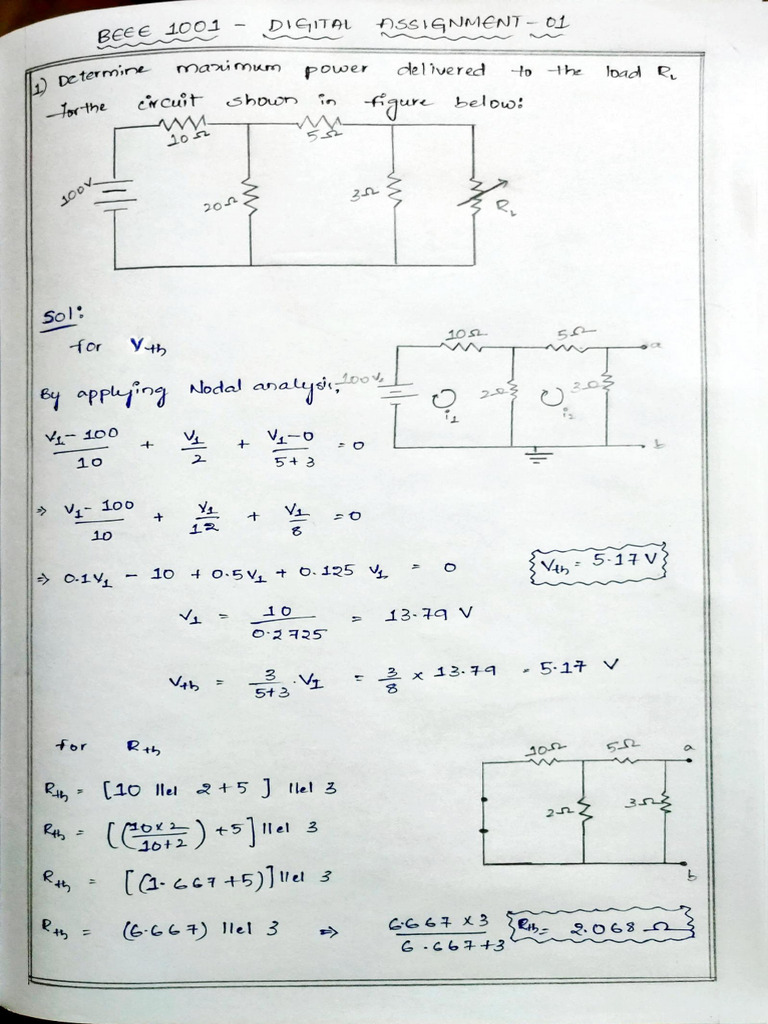 BEEE 1001 - DIGITAL ASSIGNMENT-01
1) Determine maximum power delivered to the load RL
for the circuit shown in figure below:
10Ω 5Ω
100V 20Ω 3Ω RL
Sol:
for Vth
10Ω 5Ω a
By applying Nodal analysis,
100V 2Ω 3Ω
i1 i2
b
(V1 - 100)/10 + V1/2 + (V1 - 0)/(5+3) = 0
⇒ (V1 - 100)/10 + V1/12 + V1/8 = 0
⇒ 0.1V1 - 10 + 0.5V1 + 0.125 V1 = 0
Vth = 5.17 V
V1 = 10/0.2725 = 13.79 V
Vth = 3/(5+3) . V1 = 3/8 × 13.79 = 5.17 V
for Rth
10Ω 5Ω a
Rth = [10 llel 2+5] llel 3
2Ω 3Ω
Rth = [((10×2)/(10+2)) +5] llel 3
Rth = [(1.667+5)] llel 3
b
Rth = (6.667) llel 3 ⇒ (6.667 × 3)/(6.667+3)
Rth = 2.068 Ω